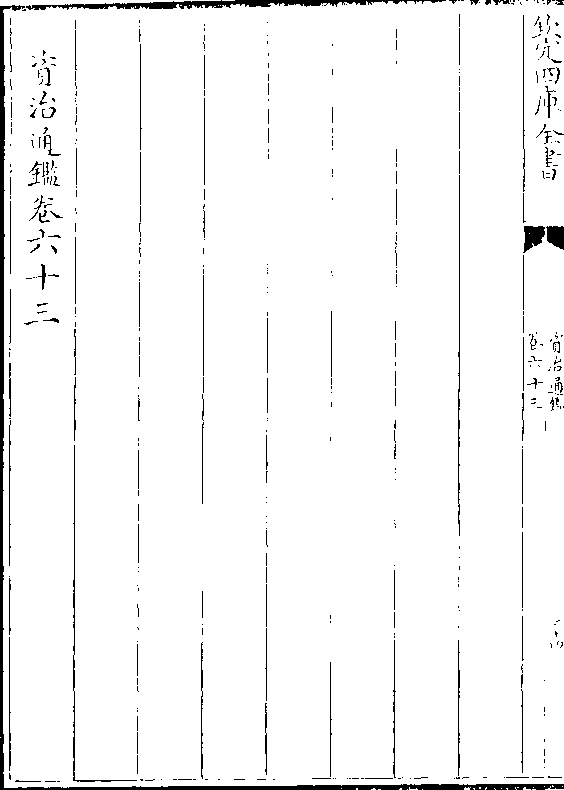 欽定四庫全書
資治通鑑
卷六十三
資治通鑑卷六十三